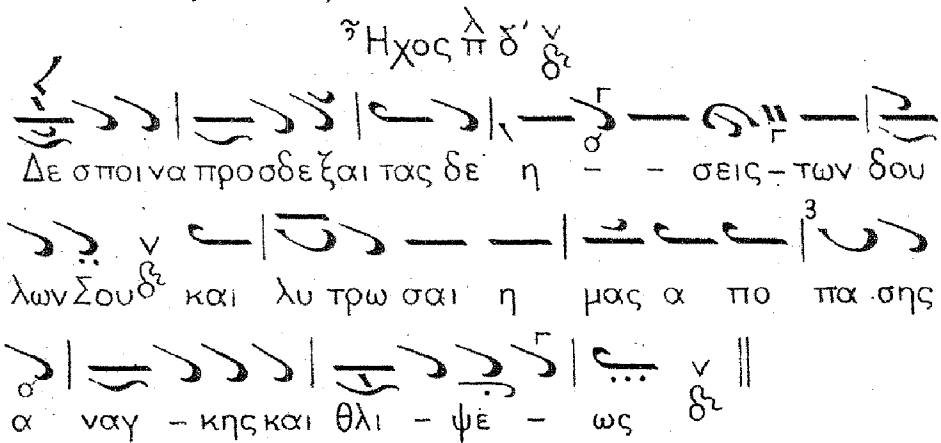 Ἦχος λ π δ' ν δι
Δε σποι να προσ δε ξαι τας δε η - - σεις - των δου
λων Σου ν δι και λυ τρω σαι η μας α πο πα σης
α ναγ - κης και θλι - ψε - ως ν δι